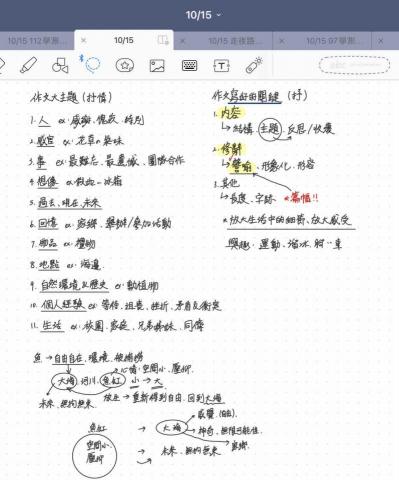 10/15
10/15 112學測...
10/15
10/15 走後路...
10/15 97學測...
作文大主題 (抒情)
1. 人 ex. 感謝、愧疚、特別
2. 感官 ex. 花草の氣味
3. 事 ex. 最難忘、最遺憾、團隊合作
4. 想像 ex. 冰箱
5. 過去、現在、未來
6. 回憶 ex. 參加活動
7. 物品 ex. 禮物
8. 地點 ex. 海邊
9. 自然環境&歷史 ex. 動植物
10. 個人經驗 ex. 等待、挫折、矛盾&衝突
11. 生活 ex. 校園、家庭、兄弟姊妹、同儕
作文寫好的關鍵 (抒)
1. 內容
↳ 結構、主題、反思/收穫
2. 修辭
↳ 譬喻、形象化、形容
3. 其他
↳ 長度、字跡 *篇幅!!
*放大生活中的細節、放大感受
興趣: 運動、溜冰
魚 → 自由自在、環境、被捕撈
心情: 空間小、壓抑
大海、河川、魚缸 小 → 大
未來、無拘無束
放生 → 重新得到自由、回到大海
感覺 (自由)
魚缸 → 大海 → 神奇、無限可能性
空間小 壓抑 → 未來、無拘無束